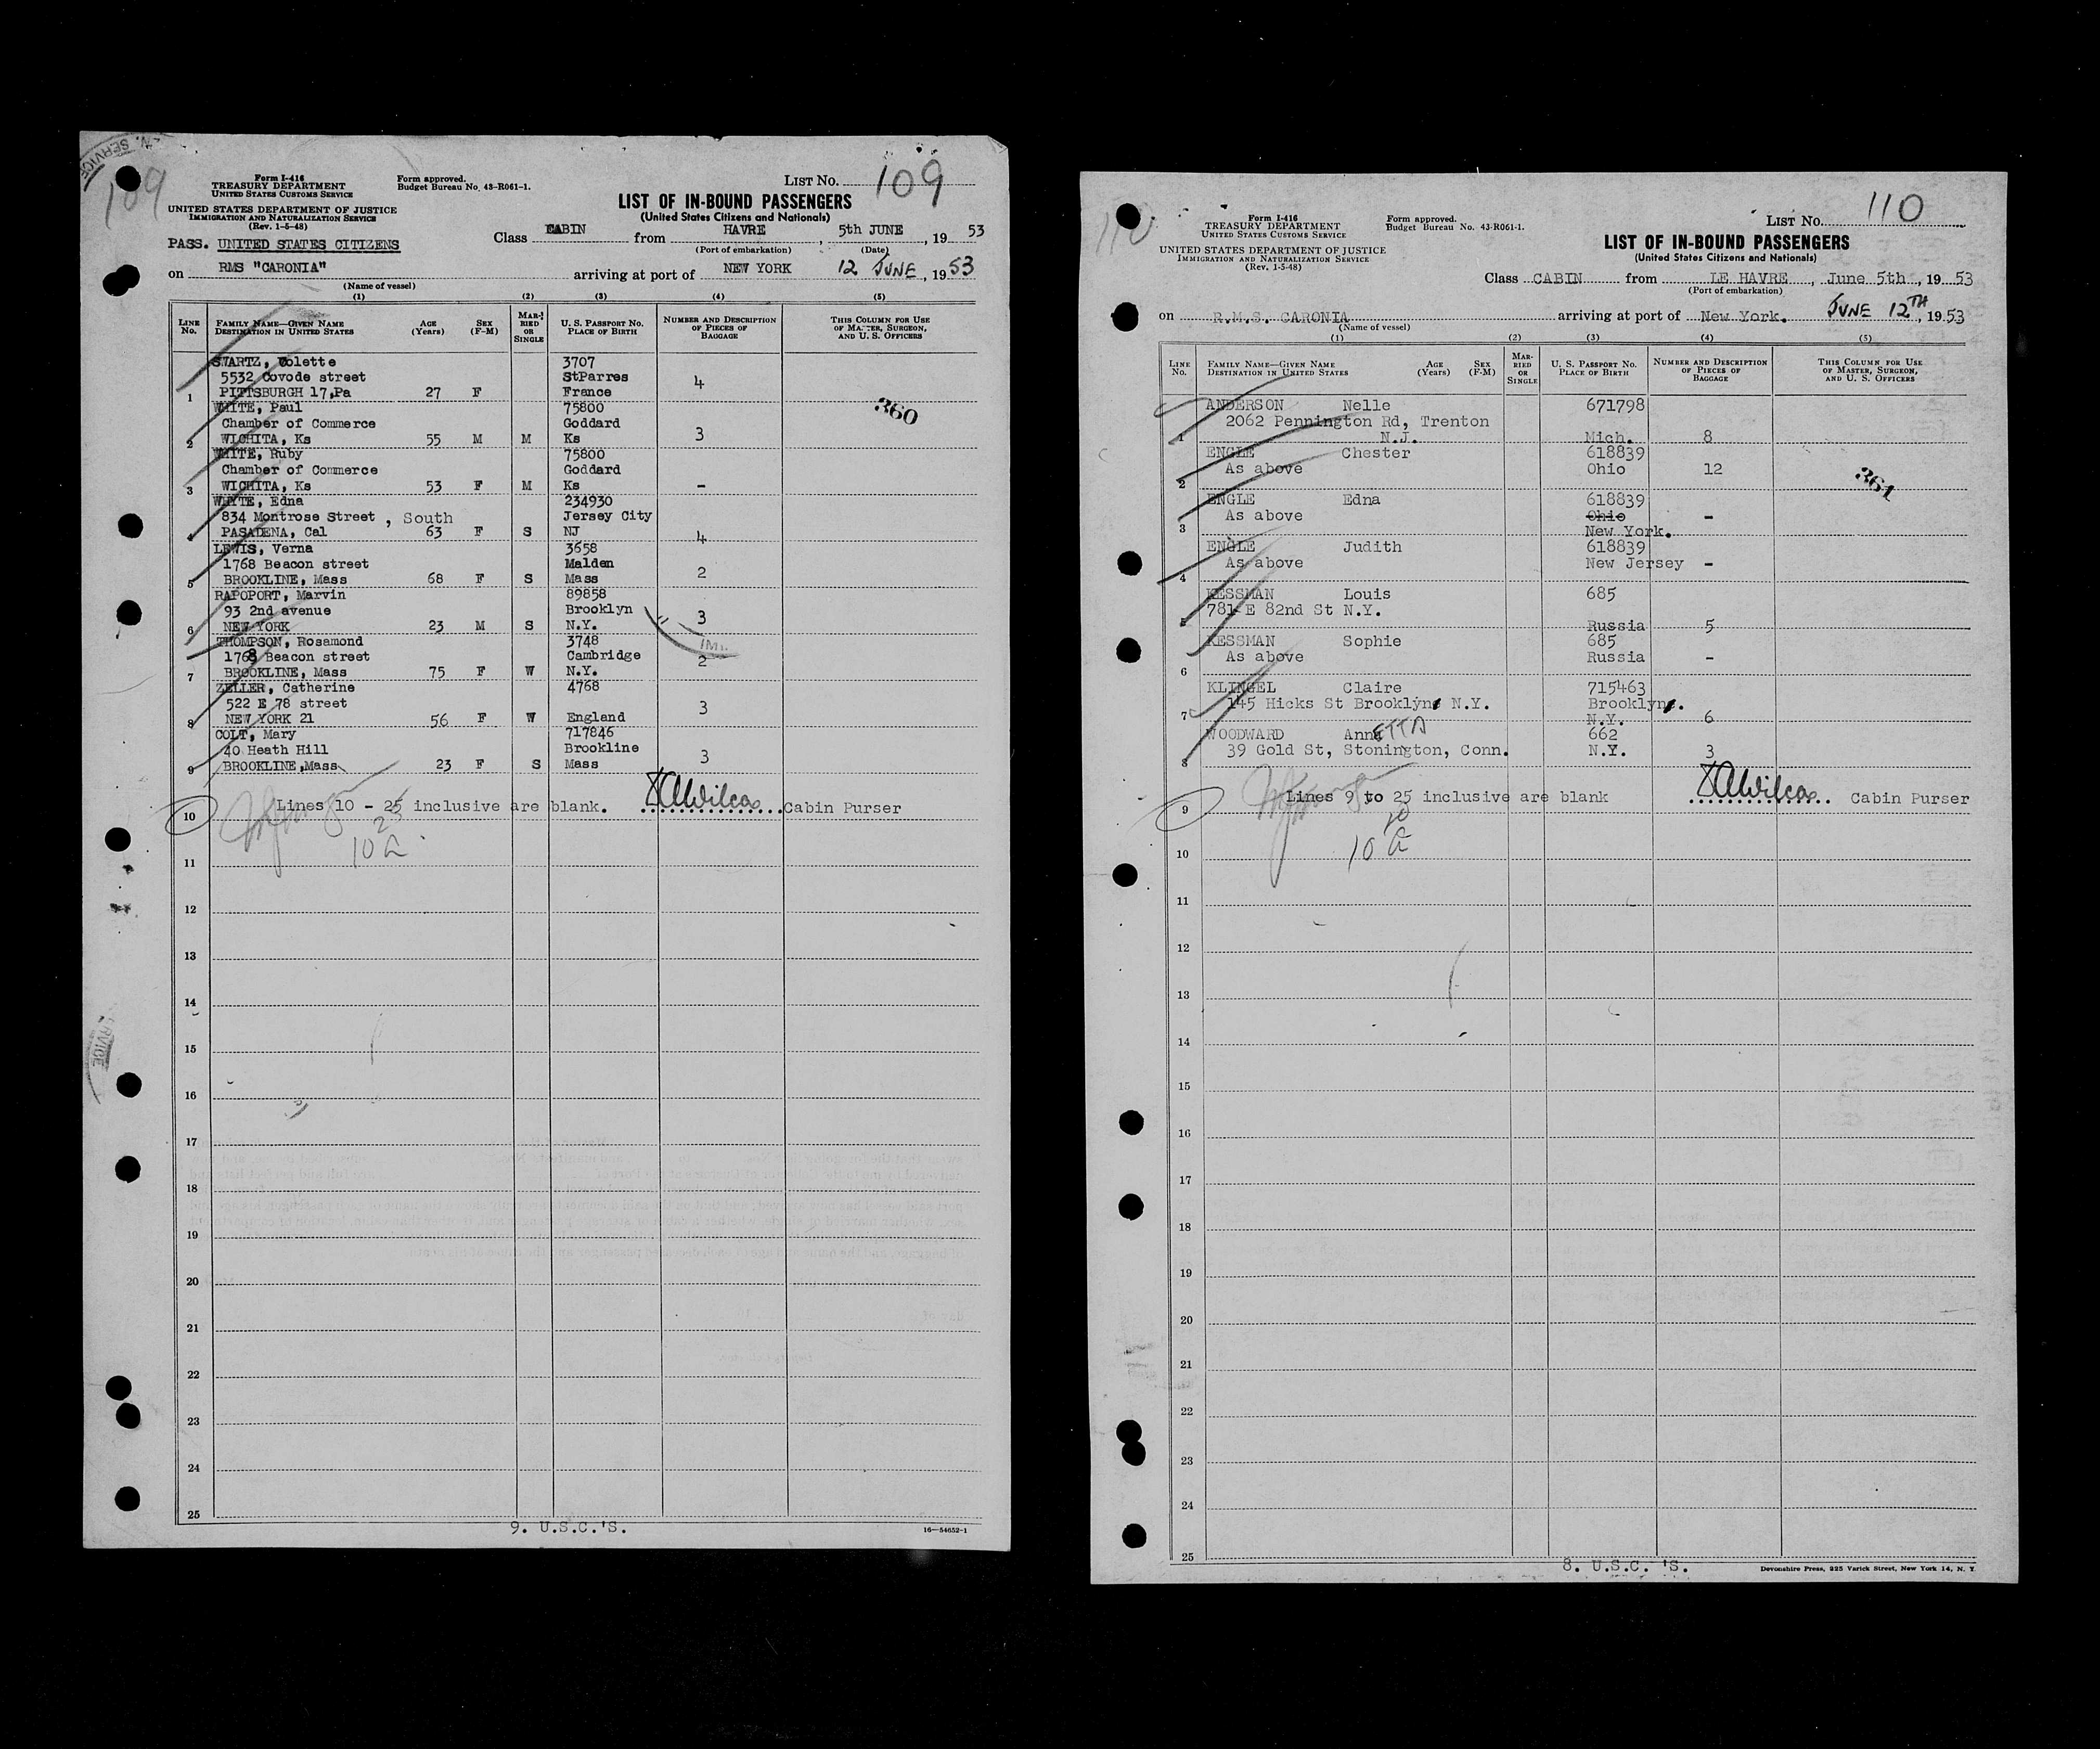 109
Form I-416
TREASURY DEPARTMENT
UNITED STATES CUSTOMS SERVICE
UNITED STATES DEPARTMENT OF JUSTICE
IMMIGRATION AND NATURALIZATION SERVICE
(Rev. 1-5-48)
Form approved.
Budget Bureau No. 43-R061-1.
LIST No. 109
LIST OF IN-BOUND PASSENGERS
(United States Citizens and Nationals)
PASS. UNITED STATES CITIZENS
Class CABIN from HAVRE, 5th JUNE, 1953
(Port of embarkation) (Date)
on RMS "CARONIA" arriving at port of NEW YORK 12 JUNE, 1953
(Name of vessel)
(1) (2) (3) (4) (5)
LINE No. FAMILY NAME—GIVEN NAME DESTINATION IN UNITED STATES AGE (Years) SEX (F-M) MARRIED OR SINGLE U. S. PASSPORT No. PLACE OF BIRTH NUMBER AND DESCRIPTION OF PIECES OF BAGGAGE THIS COLUMN FOR USE OF MASTER, SURGEON, AND U. S. OFFICERS
SWARTZ, Colette 3707
5532 Covode street StParres
1 PITTSBURGH 17,Pa 27 F France 4
WHITE, Paul 75800 360
Chamber of Commerce Goddard
2 WICHITA, Ks 55 M M Ks 3
WHITE, Ruby 75800
Chamber of Commerce Goddard
3 WICHITA, Ks 53 F M Ks -
WHYTE, Edna 234930
834 Montrose Street, South Jersey City
4 PASADENA, Cal 63 F S NJ 4
LEWIS, Verna 3658
1768 Beacon street Malden
5 BROOKLINE, Mass 68 F S Mass 2
RAPOPORT, Marvin 89858
93 2nd avenue Brooklyn
6 NEW YORK 23 M S N.Y. 3
THOMPSON, Rosamond 3748
1768 Beacon street Cambridge
7 BROOKLINE, Mass 75 F W N.Y. 2
ZELLER, Catherine 4768
522 E 78 street
8 NEW YORK 21 56 F W England 3
COLT, Mary 717846
40 Heath Hill Brookline
9 BROOKLINE,Mass 23 F S Mass 3
10 Lines 10 - 25 inclusive are blank. Cabin Purser
11
12
13
14
15
16
17
18
19
20
21
22
23
24
25
9. U.S.C.'S.
16—54652-1
110
Form I-416
TREASURY DEPARTMENT
UNITED STATES CUSTOMS SERVICE
UNITED STATES DEPARTMENT OF JUSTICE
IMMIGRATION AND NATURALIZATION SERVICE
(Rev. 1-5-48)
Form approved.
Budget Bureau No. 43-R061-1.
LIST No. 110
LIST OF IN-BOUND PASSENGERS
(United States Citizens and Nationals)
Class CABIN from LE HAVRE, June 5th, 1953
(Port of embarkation)
on R.M.S. CARONIA arriving at port of New York. JUNE 12TH, 1953
(Name of vessel)
(1) (2) (3) (4) (5)
LINE No. FAMILY NAME—GIVEN NAME DESTINATION IN UNITED STATES AGE (Years) SEX (F-M) MARRIED OR SINGLE U. S. PASSPORT No. PLACE OF BIRTH NUMBER AND DESCRIPTION OF PIECES OF BAGGAGE THIS COLUMN FOR USE OF MASTER, SURGEON, AND U. S. OFFICERS
ANDERSON Nelle 671798
2062 Pennington Rd, Trenton
1 N.J. Mich. 8
ENGLE Chester 618839
As above Ohio 12 361
2
ENGLE Edna 618839
As above Ohio -
3 New York.
ENGLE Judith 618839
As above New Jersey -
4
KESSMAN Louis 685
781 E 82nd St N.Y.
5 Russia 5
KESSMAN Sophie 685
As above Russia -
6
KLINGEL Claire 715463
145 Hicks St Brooklyn N.Y. Brooklyn.
7 N.Y. 6
WOODWARD AnnETTA 662
39 Gold St, Stonington, Conn. N.Y. 3
8
9 Lines 9 to 25 inclusive are blank Cabin Purser
10
11
12
13
14
15
16
17
18
19
20
21
22
23
24
25
8. U.S.C. 'S.
Devonshire Press, 225 Varick Street, New York 14, N. Y.